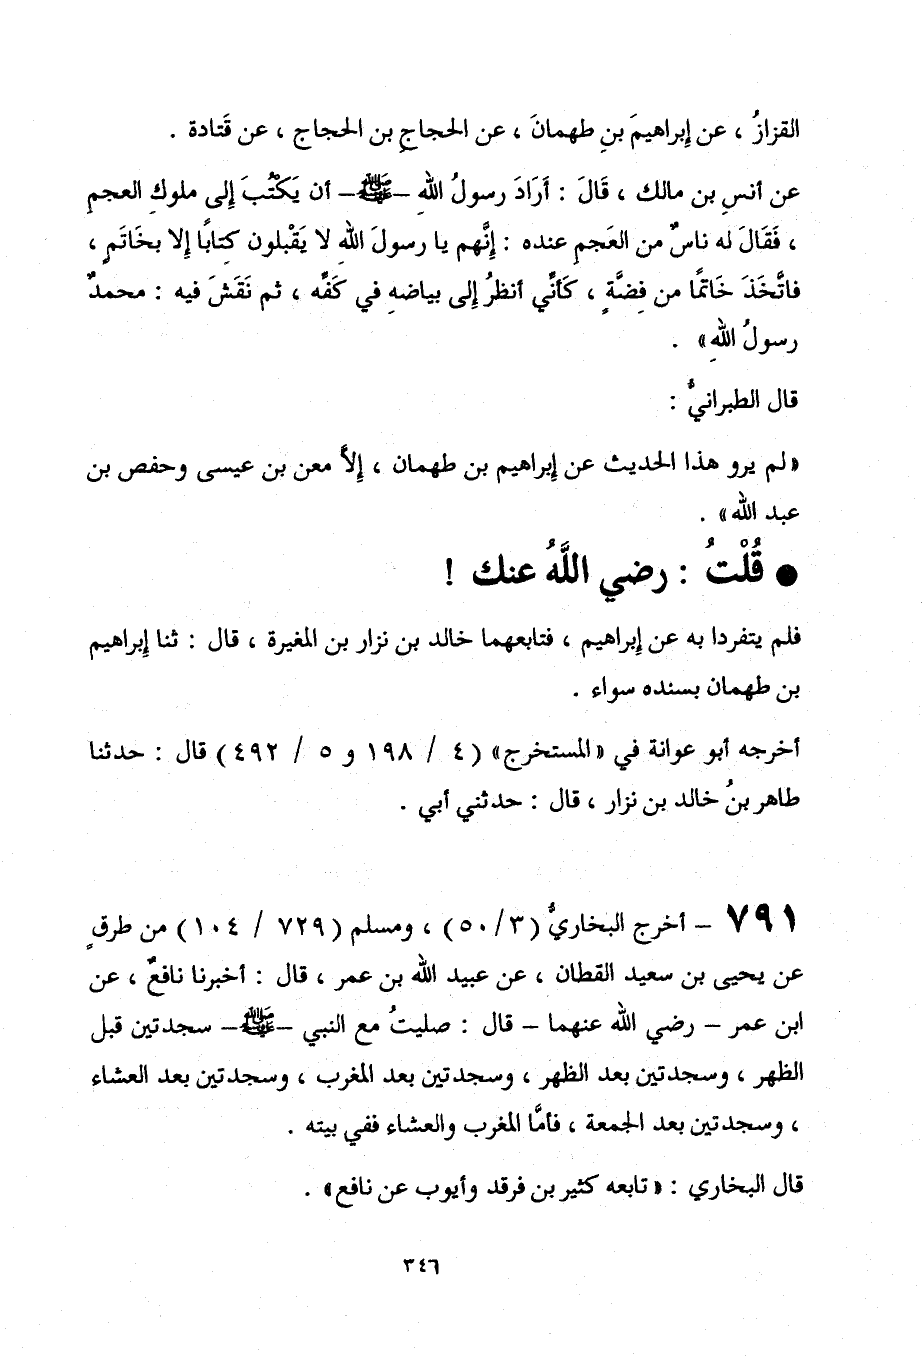 القزازُ ، عن إبراهيمَ بنِ طهمانَ ، عن الحجاجِ بن الحجاج ، عن قَتادة .
عن أنسِ بن مالك ، قَالَ : أَرَادَ رسولُ اللهِ –ﷺ– أن يَكْتُبَ إلى ملوكِ العجمِ
، فَقَالَ له ناسٌ من العَجمِ عنده : إنَّهم يا رسولَ اللهِ لا يَقْبلون كتابًا إلا بخَاتَمٍ ،
فاتَّخَذَ خَاتمًا من فِضَّةٍ ، كَأنِّي أنظرُ إلى بياضهِ في كَفِّه ، ثم نَقَشَ فيه : محمدٌ
رسولُ اللهِ» .
قال الطبرانيُّ :
«لم يرو هذا الحديث عن إبراهيم بن طهمان ، إلاَّ معن بن عيسى وحفص بن
عبد الله» .
● قُلْتُ : رضي اللَّهُ عنك !
فلم يتفردا به عن إبراهيم ، فتابعهما خالد بن نزار بن المغيرة ، قال : ثنا إبراهيم
بن طهمان بسنده سواء .
أخرجه أبو عوانة في «المستخرج» (٤ / ١٩٨ و ٥ / ٤٩٢) قال : حدثنا
طاهر بنُ خالد بن نزار ، قال : حدثني أبي .
٧٩١ – أخرج البخاريُّ (٥٠/٣) ، ومسلم (٧٢٩ / ١٠٤) من طرقٍ
عن يحيى بن سعيد القطان ، عن عبيد الله بن عمر ، قال : أخبرنا نافعٌ ، عن
ابن عمر – رضي الله عنهما – قال : صليتُ مع النبي –ﷺ– سجدتين قبل
الظهر ، وسجدتين بعد الظهر ، وسجدتين بعد المغرب ، وسجدتين بعد العشاء
، وسجدتين بعد الجمعة ، فأمَّا المغرب والعشاء ففي بيته .
قال البخاري : « تابعه كثير بن فرقد وأيوب عن نافع» .
٣٤٦